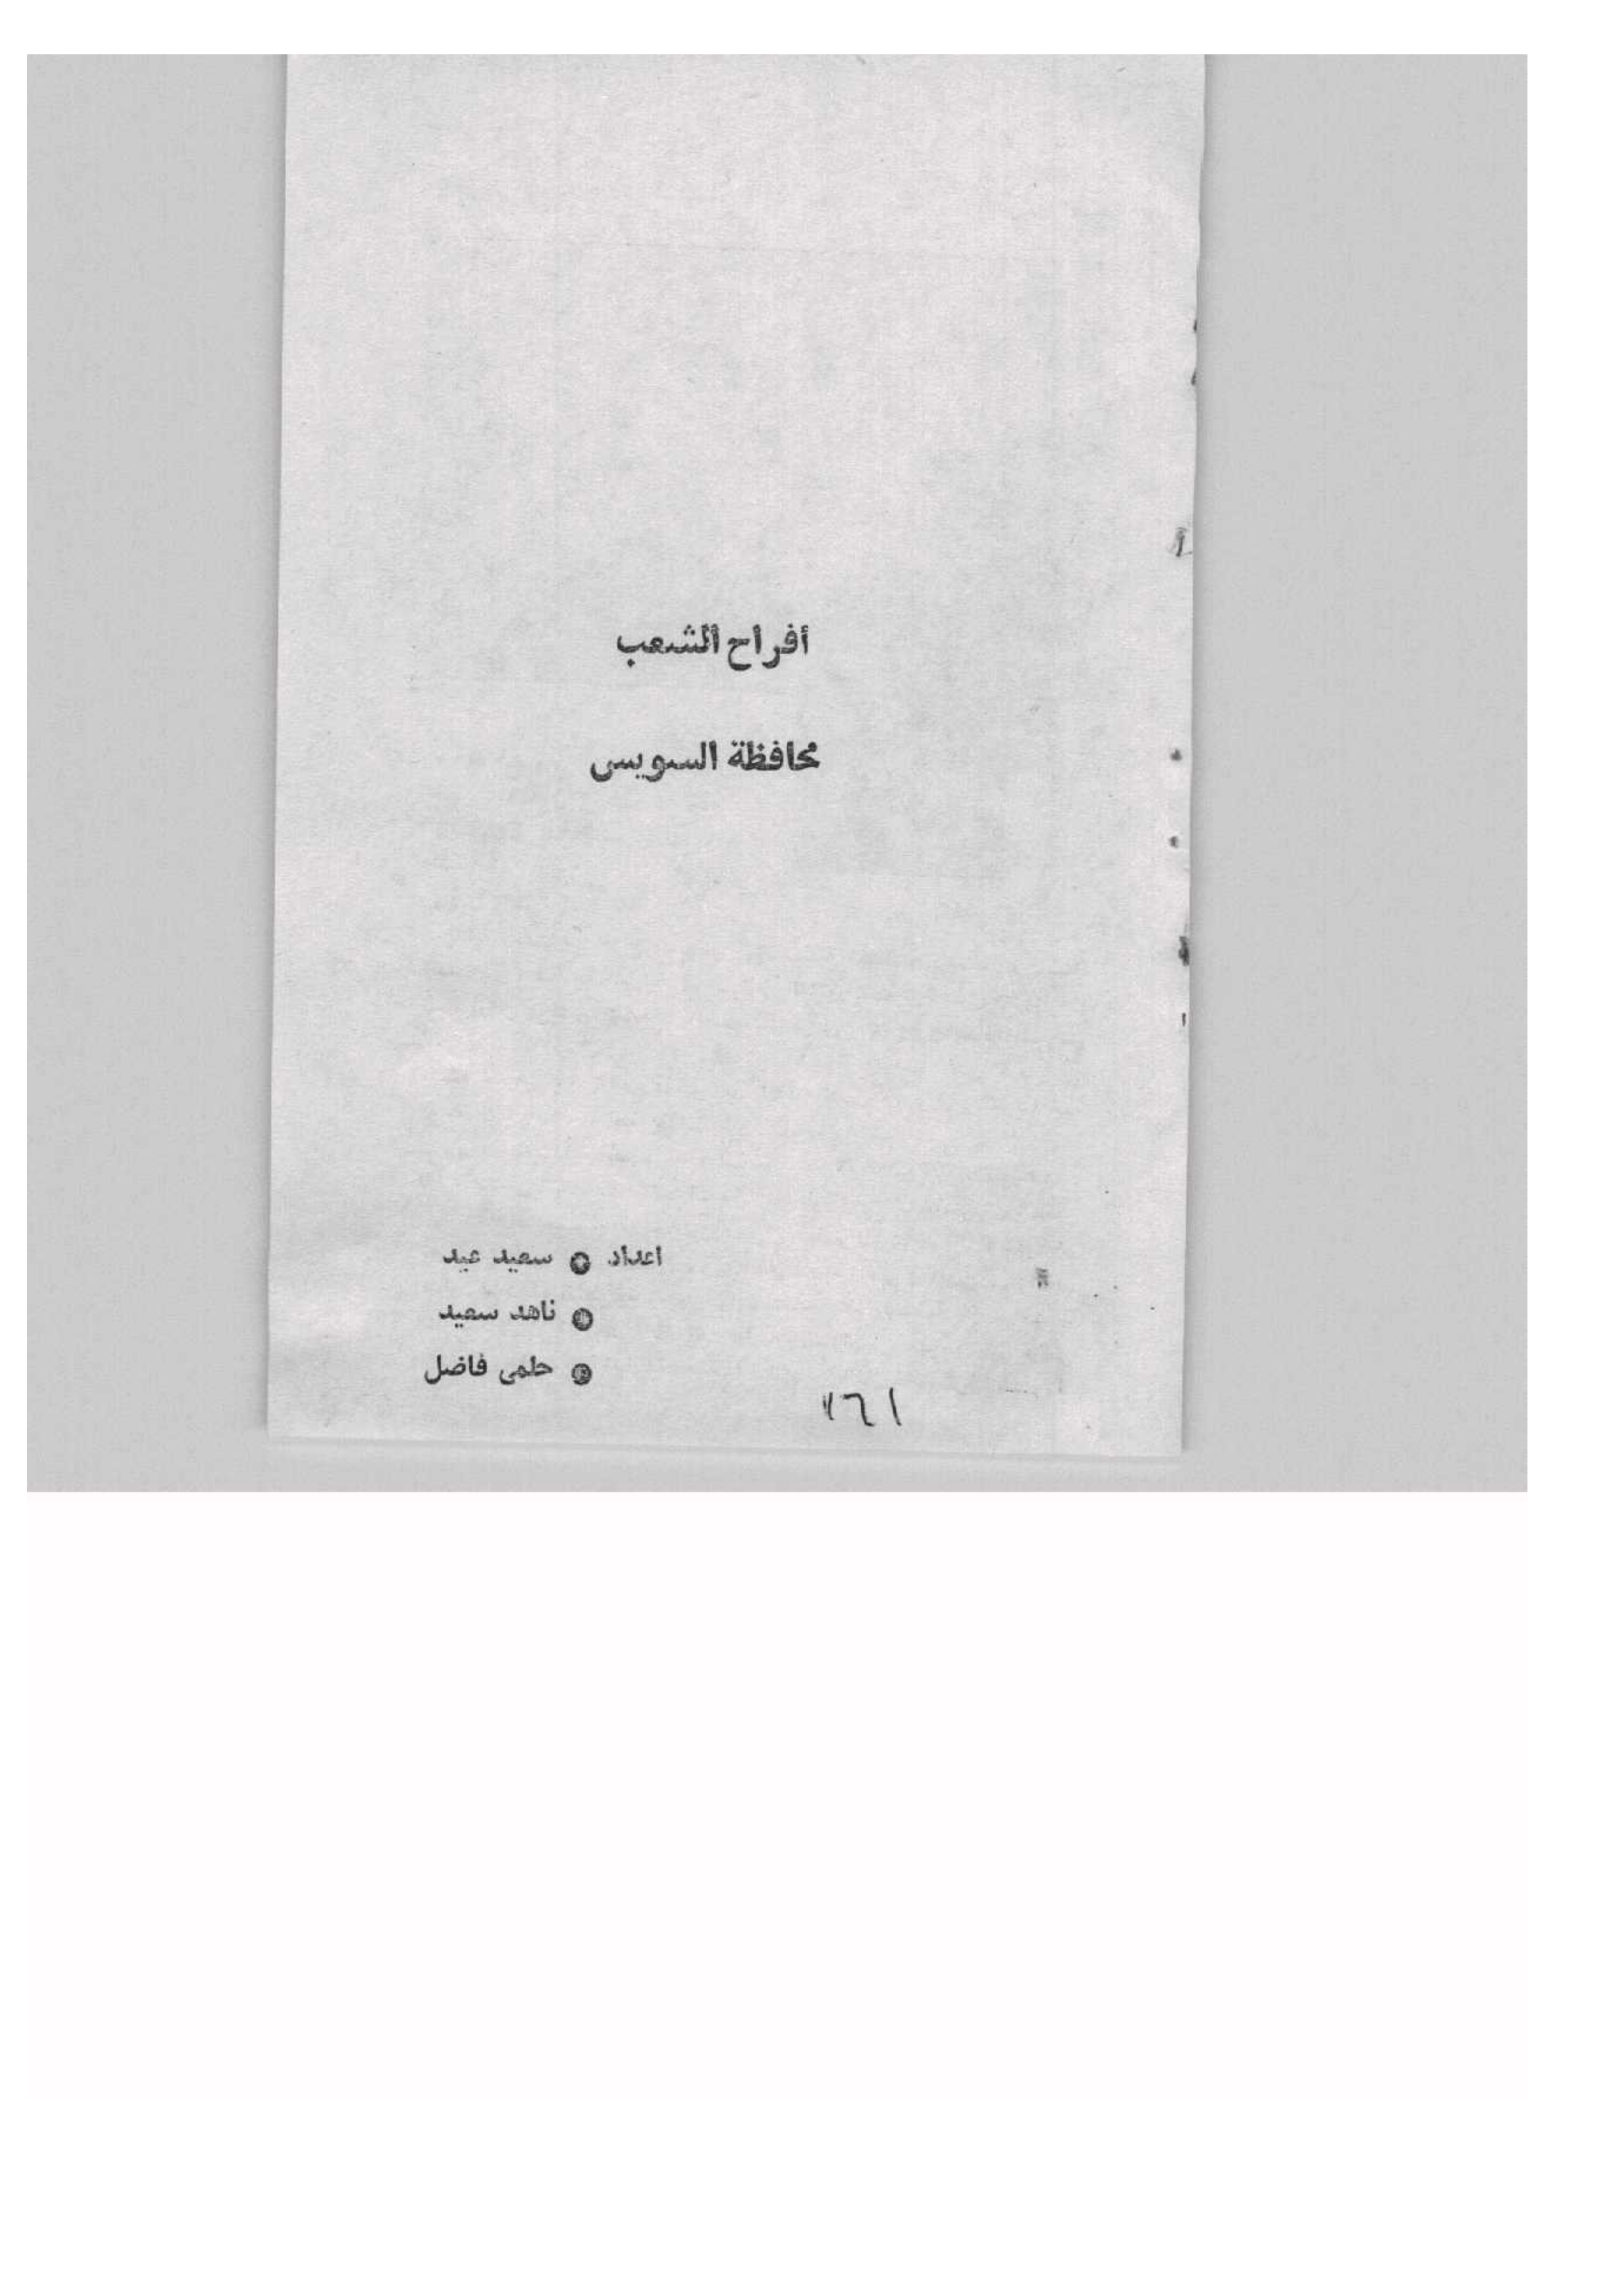 أفراح الشعب
محافظة السويس
اعداد ● سعيد عيد
● ناهد سعيد
● حلمى فاضل